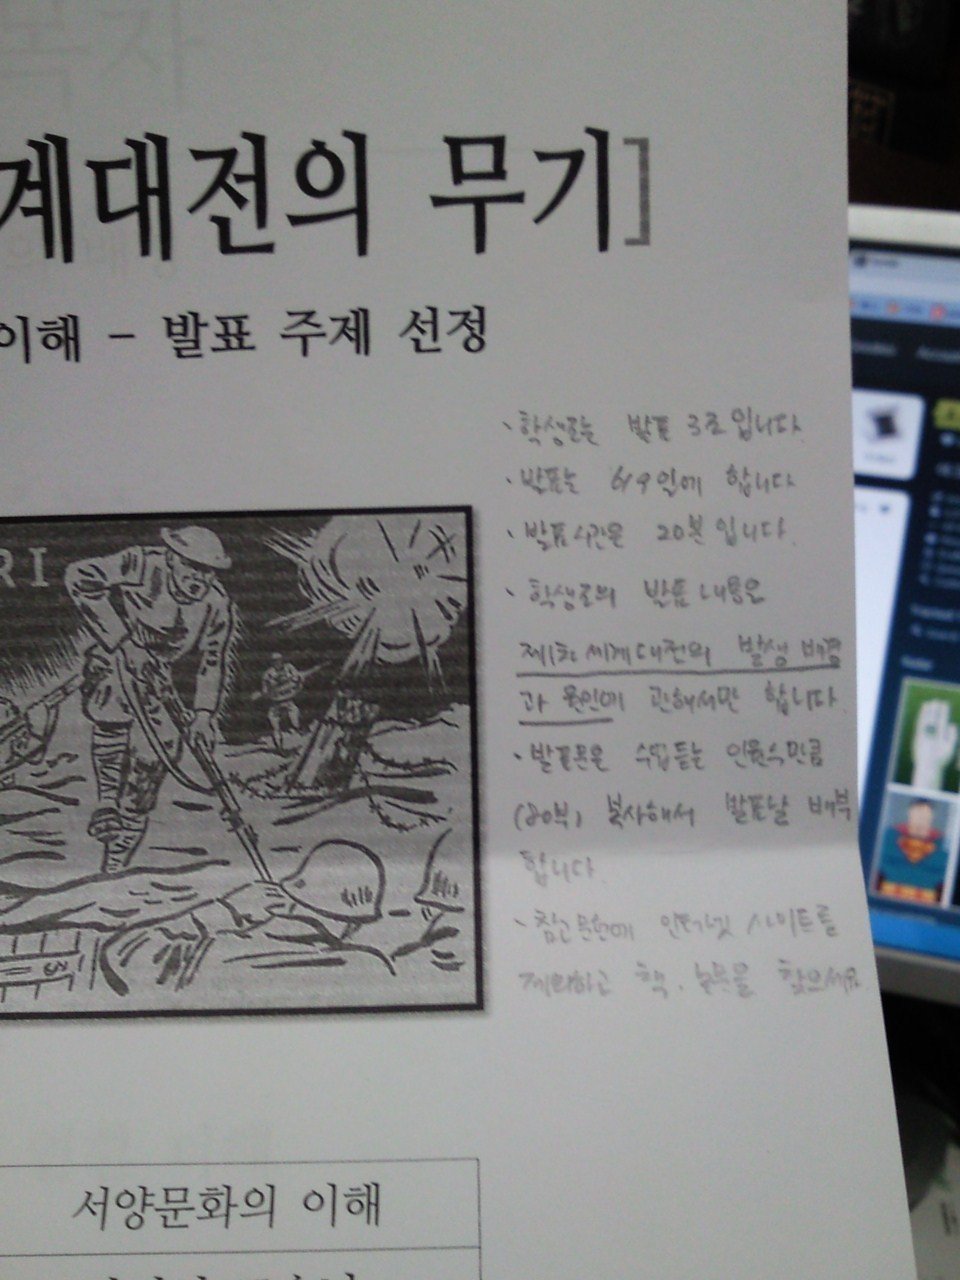 계대전의 무기]
이해 - 발표 주제 선정
· 학생조는 발표 3조입니다.
· 발표는 6/9일에 합니다
· 발표시간은 20분입니다.
· 학생조의 발표내용은
제1차 세계대전의 발생 배경
과 원인에 관해서만 합니다.
· 발표문은 수업듣는 인원수만큼
(80부) 복사해서 발표날 배부
합니다.
· 참고문헌에 인터넷 사이트를
제외하고 책, 논문을 찾으세요
RI
서양문화의 이해